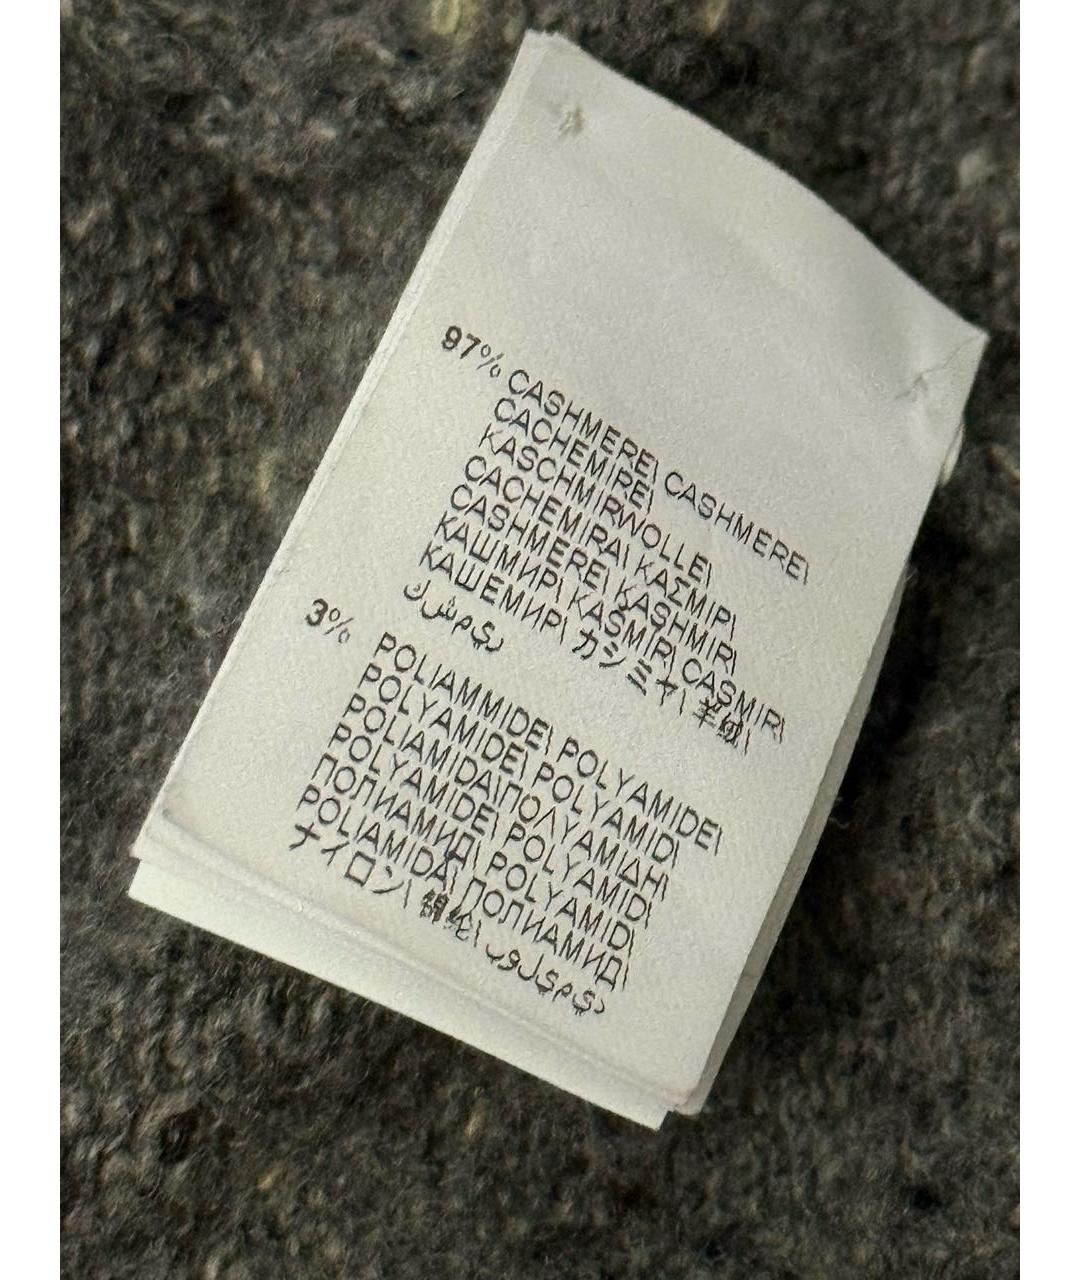 97% CASHMERE\ CASHMERE\
CACHEMIRE\
KASCHMIRWOLLE\
CACHEMIRA\ ΚΑΣΜΙΡ\
CASHMERE\ KASHMIR\
КАШМИР\ KAŠMIR\ CASMIR\
КАШЕМИР\ カシミヤ\ 羊绒\
كشمير
3% POLIAMMIDE\ POLYAMIDE\
POLYAMIDE\ POLYAMID\
POLIAMIDA\ΠΟΛΥΑΜΙΔΗ\
POLYAMIDE\ POLYAMID\
ПОЛИАМИД\ POLYAMID\
POLIAMIDA\ ПОЛИАМИД\
ナイロン\ 锦纶\ بوليميد